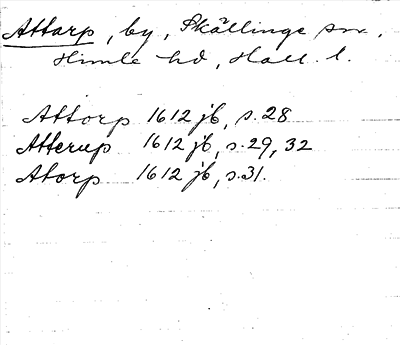 Attarp, by, Skällinge sn,
Himle hd, Hall. l.
Attorp 1612 jb, s. 28
Atterup 1612 jb, s. 29, 32
Atorp 1612 jb, s. 31.